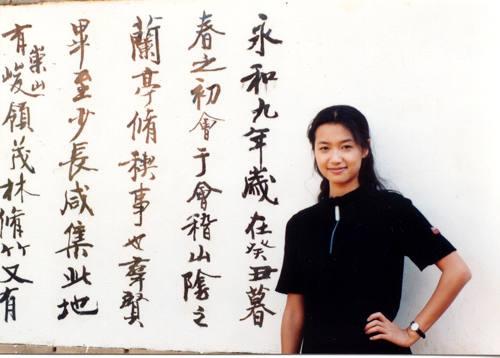 永和九年歲在癸丑暮
春之初會于會稽山陰之
蘭亭脩稧事也羣賢
畢至少長咸集此地
有崇山峻領茂林脩竹又有